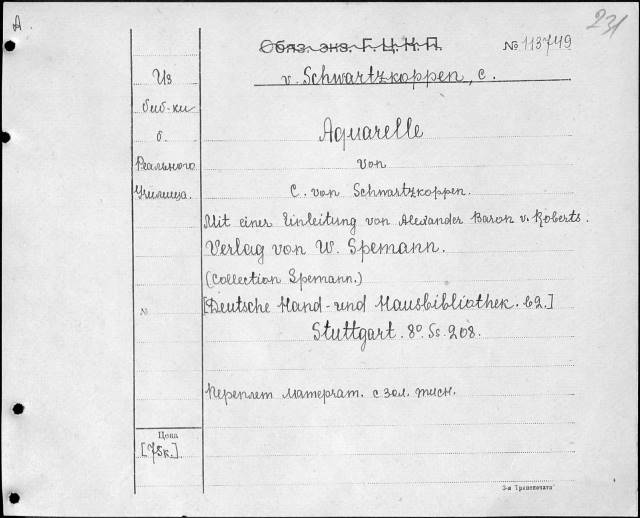 A
231
Обяз. экз. Г.Ц.К.П.
№ 113749
v. Schwartzkoppen, C.
Из
биб-ки
б.
Реального
Училища.
Aquarelle
von
C. von Schwartzkoppen.
Mit einer Einleitung von Alexander Baron v. Roberts.
Verlag von W. Spemann.
(Collection Spemann.)
[Deutsche Hand- und Hausbibliothek. 62.]
№
Stuttgart. 8º. Ss. 208.
Переплет матерчат. с зол. тисн.
Цена
[75к.]
3-я Транспечать